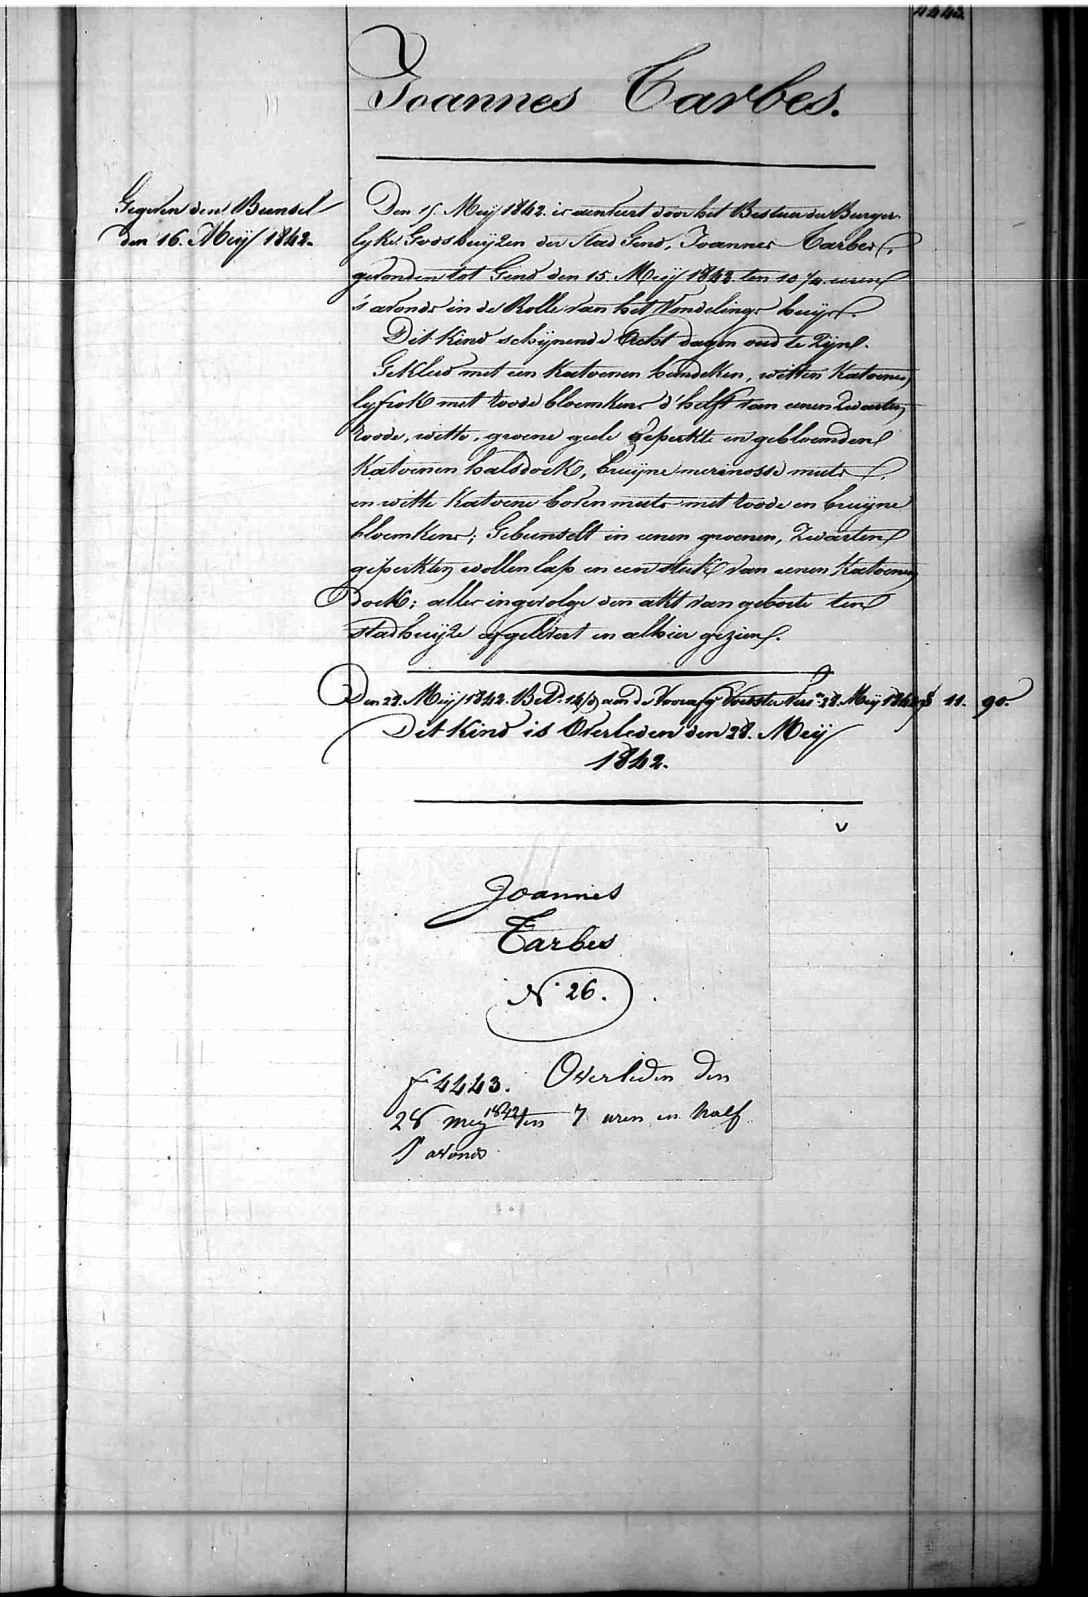 4443.
Joannes Tarbes.
Gegeven den Bunsel
den 16. Meij 1842.
Den 15. Meij 1842. is aenveert door het Bestuur der Burger-
lyke Godshuijzen der stad Gend, Joannes Tarbes,
gevonden tot Gend den 15. Meij 1842. ten 10 1/4 uren
's avonds in de Rolle van het Vondelings huijs.
Dit Kind schijnende Acht dagen oud te Zijn.
Gekleed met een Katoenen hemdeken, witten Katoenen
lyfrok met roode bloemkens d'helft van eenen Zwarten,
roode, witte, groene geele geperkte en gebloemden
Katoenen halsdoek, bruijne merinosse muts
en witte Katoene bovenmuts met roode en bruijne
bloemkens; Gebunselt in eenen groenen, Zwarten
geperkten wollen lap en een stuk van eenen Katoenen
doek; alles ingevolge den akt van geboorte ten
stadhuijze afgelevert en alhier gezien.
Den 28. Meij 1842. Bet. 14/d aan de Voorzg. Voedster 28. Meij 1842 11. 90.
Dit Kind is Overleden den 28. Meij
1842.
Joannes
Tarbes
N° 26.
f 4443. Overleden den
28 meij 1842 ten 7 uren en half
s' avonds